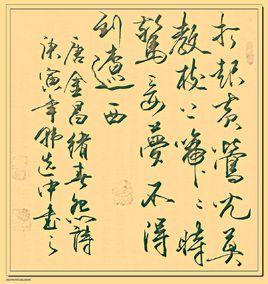 打起黄鶯兒莫
教枝上啼〻時
驚妾夢不得
到遼西
唐金昌緒春怨詩
庚寅年中書之